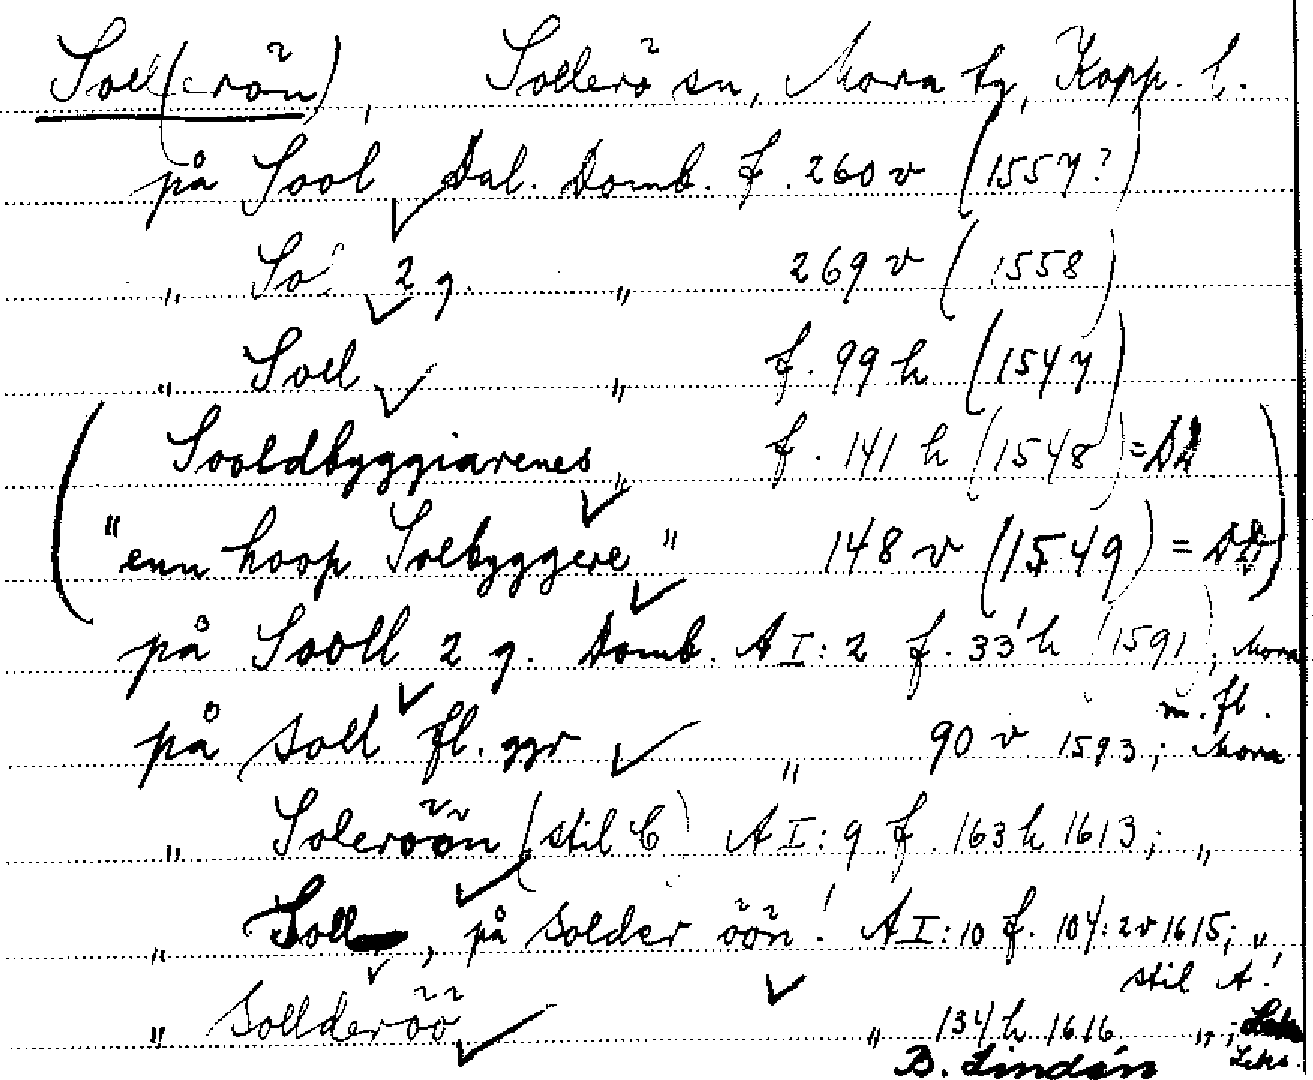 Soll(erön), Sollerö sn, Mora tg, Kopp. l.
på Sool Dal. Domb. f. 260 v (1557?)
„ So 2 g. „ 269 v (1558)
„ Soll „ f. 99 h (1547)
(Sooldbyggiarenes „ f. 141 h (1548) = DD
"enn hoop Solbyggere" 148 v (1549) = DD)
på Sooll 2 g. Domb. A I:2 f. 33 h (1591); Mora
m. fl.
på Soll fl. ggr „ 90 v 1593; Mora
„ Soleröön (stil C) A I:9 f. 163 h 1613; „
„ Soll, på Solder öön! A I:10 f. 104:2v 1615; „
stil A!
„ Sollderöö „ 134 h 1616 „;
B. Lindén Leks.